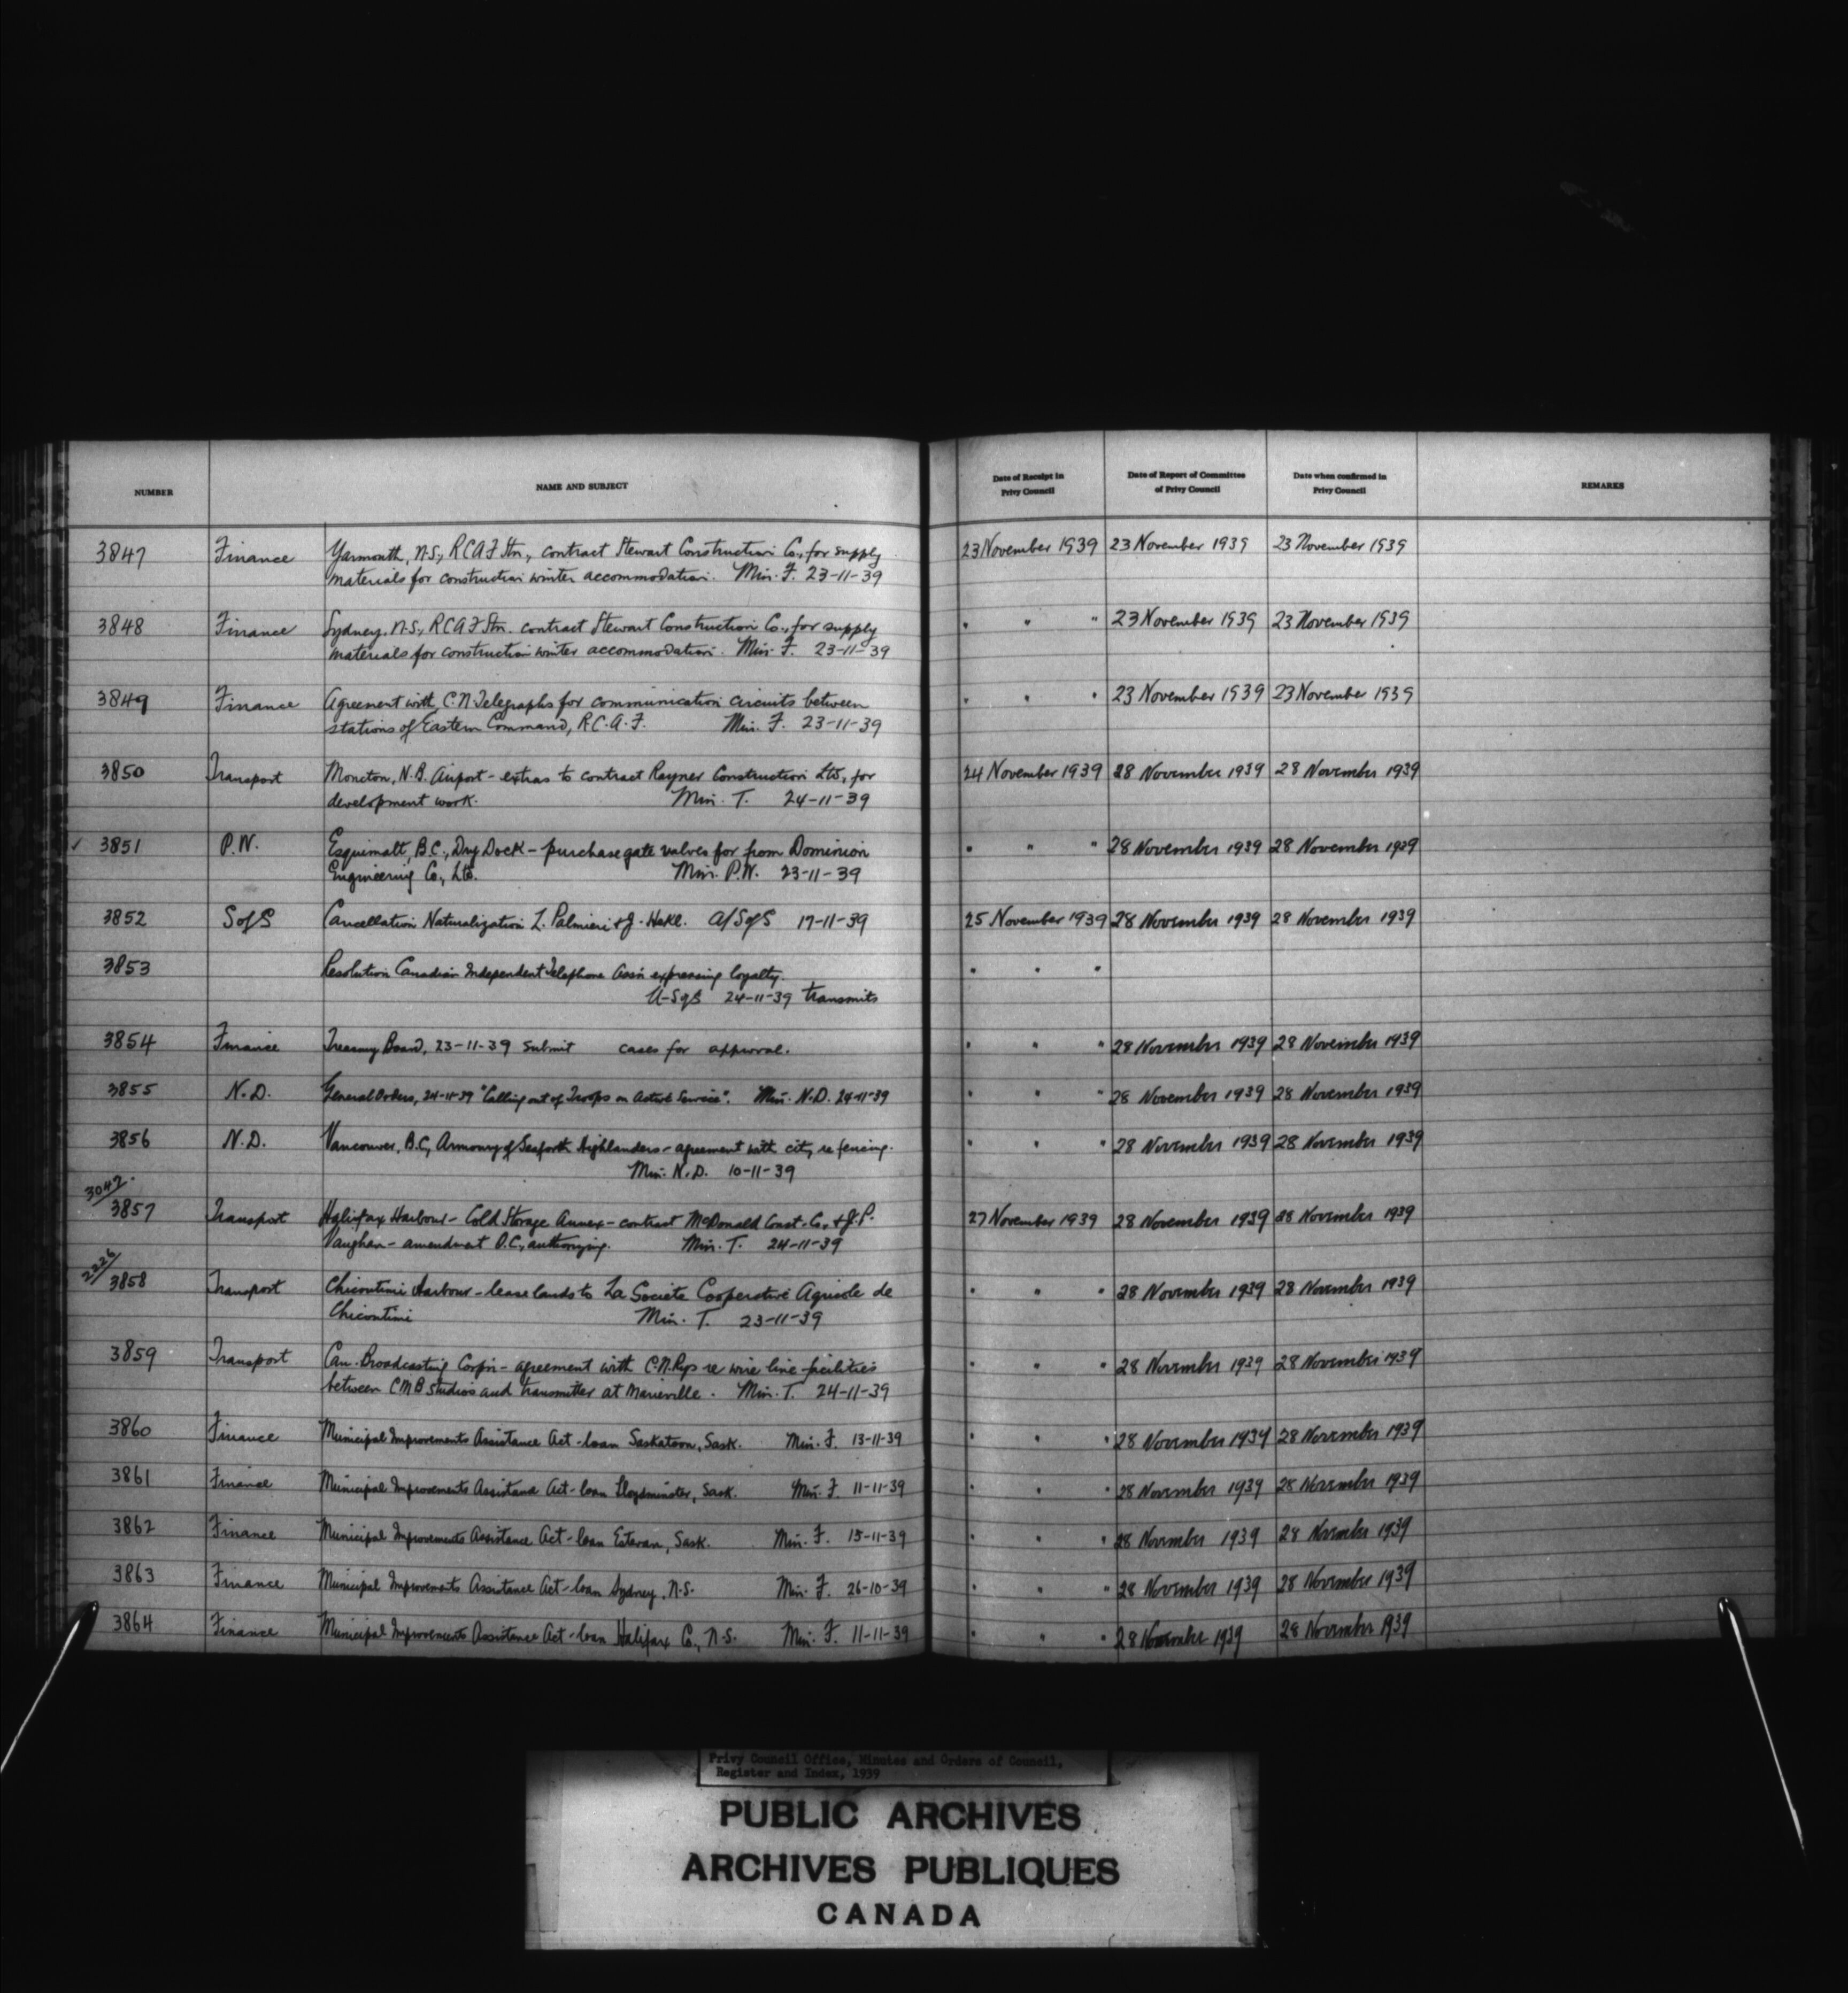 NUMBER NAME AND SUBJECT Date of Receipt in Privy Council Date of Report of Committee of Privy Council Date when confirmed in Privy Council REMARKS
3847 Finance Yarmouth, N.S., RCAF Stn., contract Stewart Construction Co., for supply 23 November 1939 23 November 1939 23 November 1939
materials for construction winter accommodation. Min. F. 23-11-39
3848 Finance Sydney, N.S., RCAF Stn. contract Stewart Construction Co., for supply " " " 23 November 1939 23 November 1939
materials for construction winter accommodation. Min. F. 23-11-39
3849 Finance Agreement with C.N. Telegraphs for communication circuits between " " " 23 November 1939 23 November 1939
stations of Eastern Command, R.C.A.F. Min. F. 23-11-39
3850 Transport Moncton, N.B. Airport - extras to contract Rayner Construction Ltd., for 24 November 1939 28 November 1939 28 November 1939
development work. Min. T. 24-11-39
✓ 3851 P.W. Esquimalt, B.C., Dry Dock - purchase gate valves for from Dominion " " " 28 November 1939 28 November 1939
Engineering Co., Ltd. Min. P.W. 23-11-39
3852 S of S Cancellation Naturalization L. Palmieri & J. Hekl. A/S of S 17-11-39 25 November 1939 28 November 1939 28 November 1939
3853 Resolution Canadian Independent Telephone Ass'n expressing loyalty. " " "
U-S of S 24-11-39 transmits
3854 Finance Treasury Board, 23-11-39 submit cases for approval. " " " 28 November 1939 28 November 1939
3855 N.D. General Orders, 24-11-39 "Calling out of Troops on Active Service". Min. N.D. 24-11-39 " " " 28 November 1939 28 November 1939
3856 N.D. Vancouver, B.C., Armoury of Seaforth Highlanders - agreement with city re fencing. " " " 28 November 1939 28 November 1939
Min. N.D. 10-11-39
3042
3857 Transport Halifax Harbour - Cold Storage Annex - contract McDonald Const. Co., & J.P. 27 November 1939 28 November 1939 28 November 1939
Vaughan - amendment O.C., authorizing. Min. T. 24-11-39
2226
3858 Transport Chicoutimi Harbour - lease lands to La Societe Cooperative Agricole de " " " 28 November 1939 28 November 1939
Chicoutimi Min. T. 23-11-39
3859 Transport Can. Broadcasting Corp'n - agreement with C.N.Rys re wire line facilities " " " 28 November 1939 28 November 1939
between CMB studios and transmitter at Marieville. Min. T. 24-11-39
3860 Finance Municipal Improvements Assistance Act - loan Saskatoon, Sask. Min. F. 13-11-39 " " " 28 November 1939 28 November 1939
3861 Finance Municipal Improvements Assistance Act - loan Lloydminster, Sask. Min. F. 11-11-39 " " " 28 November 1939 28 November 1939
3862 Finance Municipal Improvements Assistance Act - loan Estevan, Sask. Min. F. 15-11-39 " " " 28 November 1939 28 November 1939
3863 Finance Municipal Improvements Assistance Act - loan Sydney, N.S. Min. F. 26-10-39 " " " 28 November 1939 28 November 1939
3864 Finance Municipal Improvements Assistance Act - loan Halifax Co., N.S. Min. F. 11-11-39 " " " 28 November 1939 28 November 1939
Privy Council Office, Minutes and Orders of Council,
Register and Index, 1939
PUBLIC ARCHIVES
ARCHIVES PUBLIQUES
CANADA